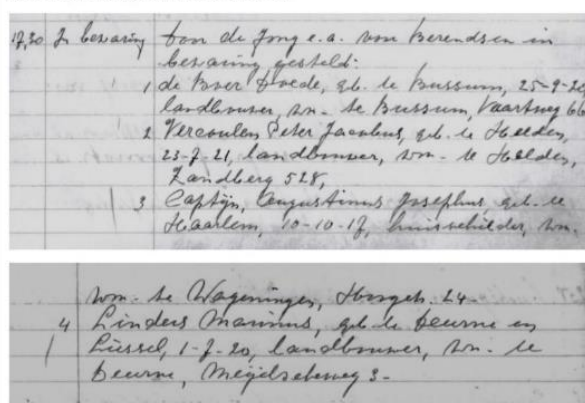 17,30 In bewaring door de Jong e.a. von Berendsen in
bewaring gesteld:
1 de Boer Doede, geb. te Bussum, 25-9-20,
landbouwer, won. te Bussum, Vaartweg 66
2 Vercoulen Peter Jacobus, geb. te Helden,
23-7-21, landbouwer, won. te Helden,
Zandberg 528,
3 Captijn, Augustinus Josephus geb. te
Haarlem, 10-10-17, huisschilder, won.
won. te Wageningen, 24-
4 Linders Marinus, geb. te Deurne en
Liessel, 1-7-20, landbouwer, won. te
Deurne, 3-